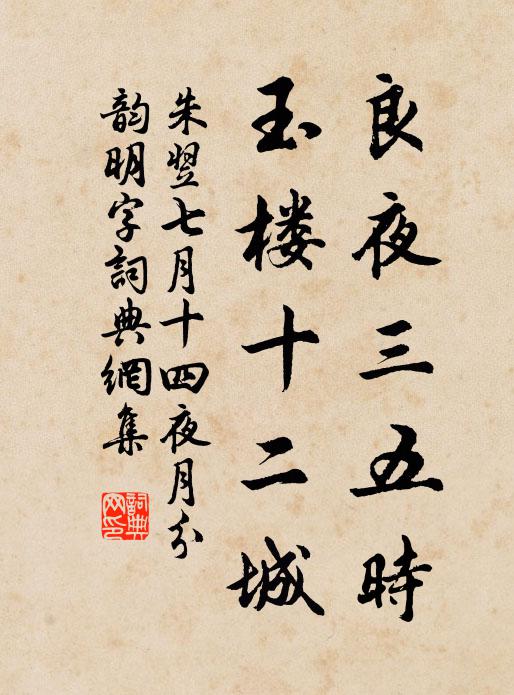 良夜三五時
玉楼十二城
朱翌七月十四夜月分
韵明字詞典網集
詞典網印